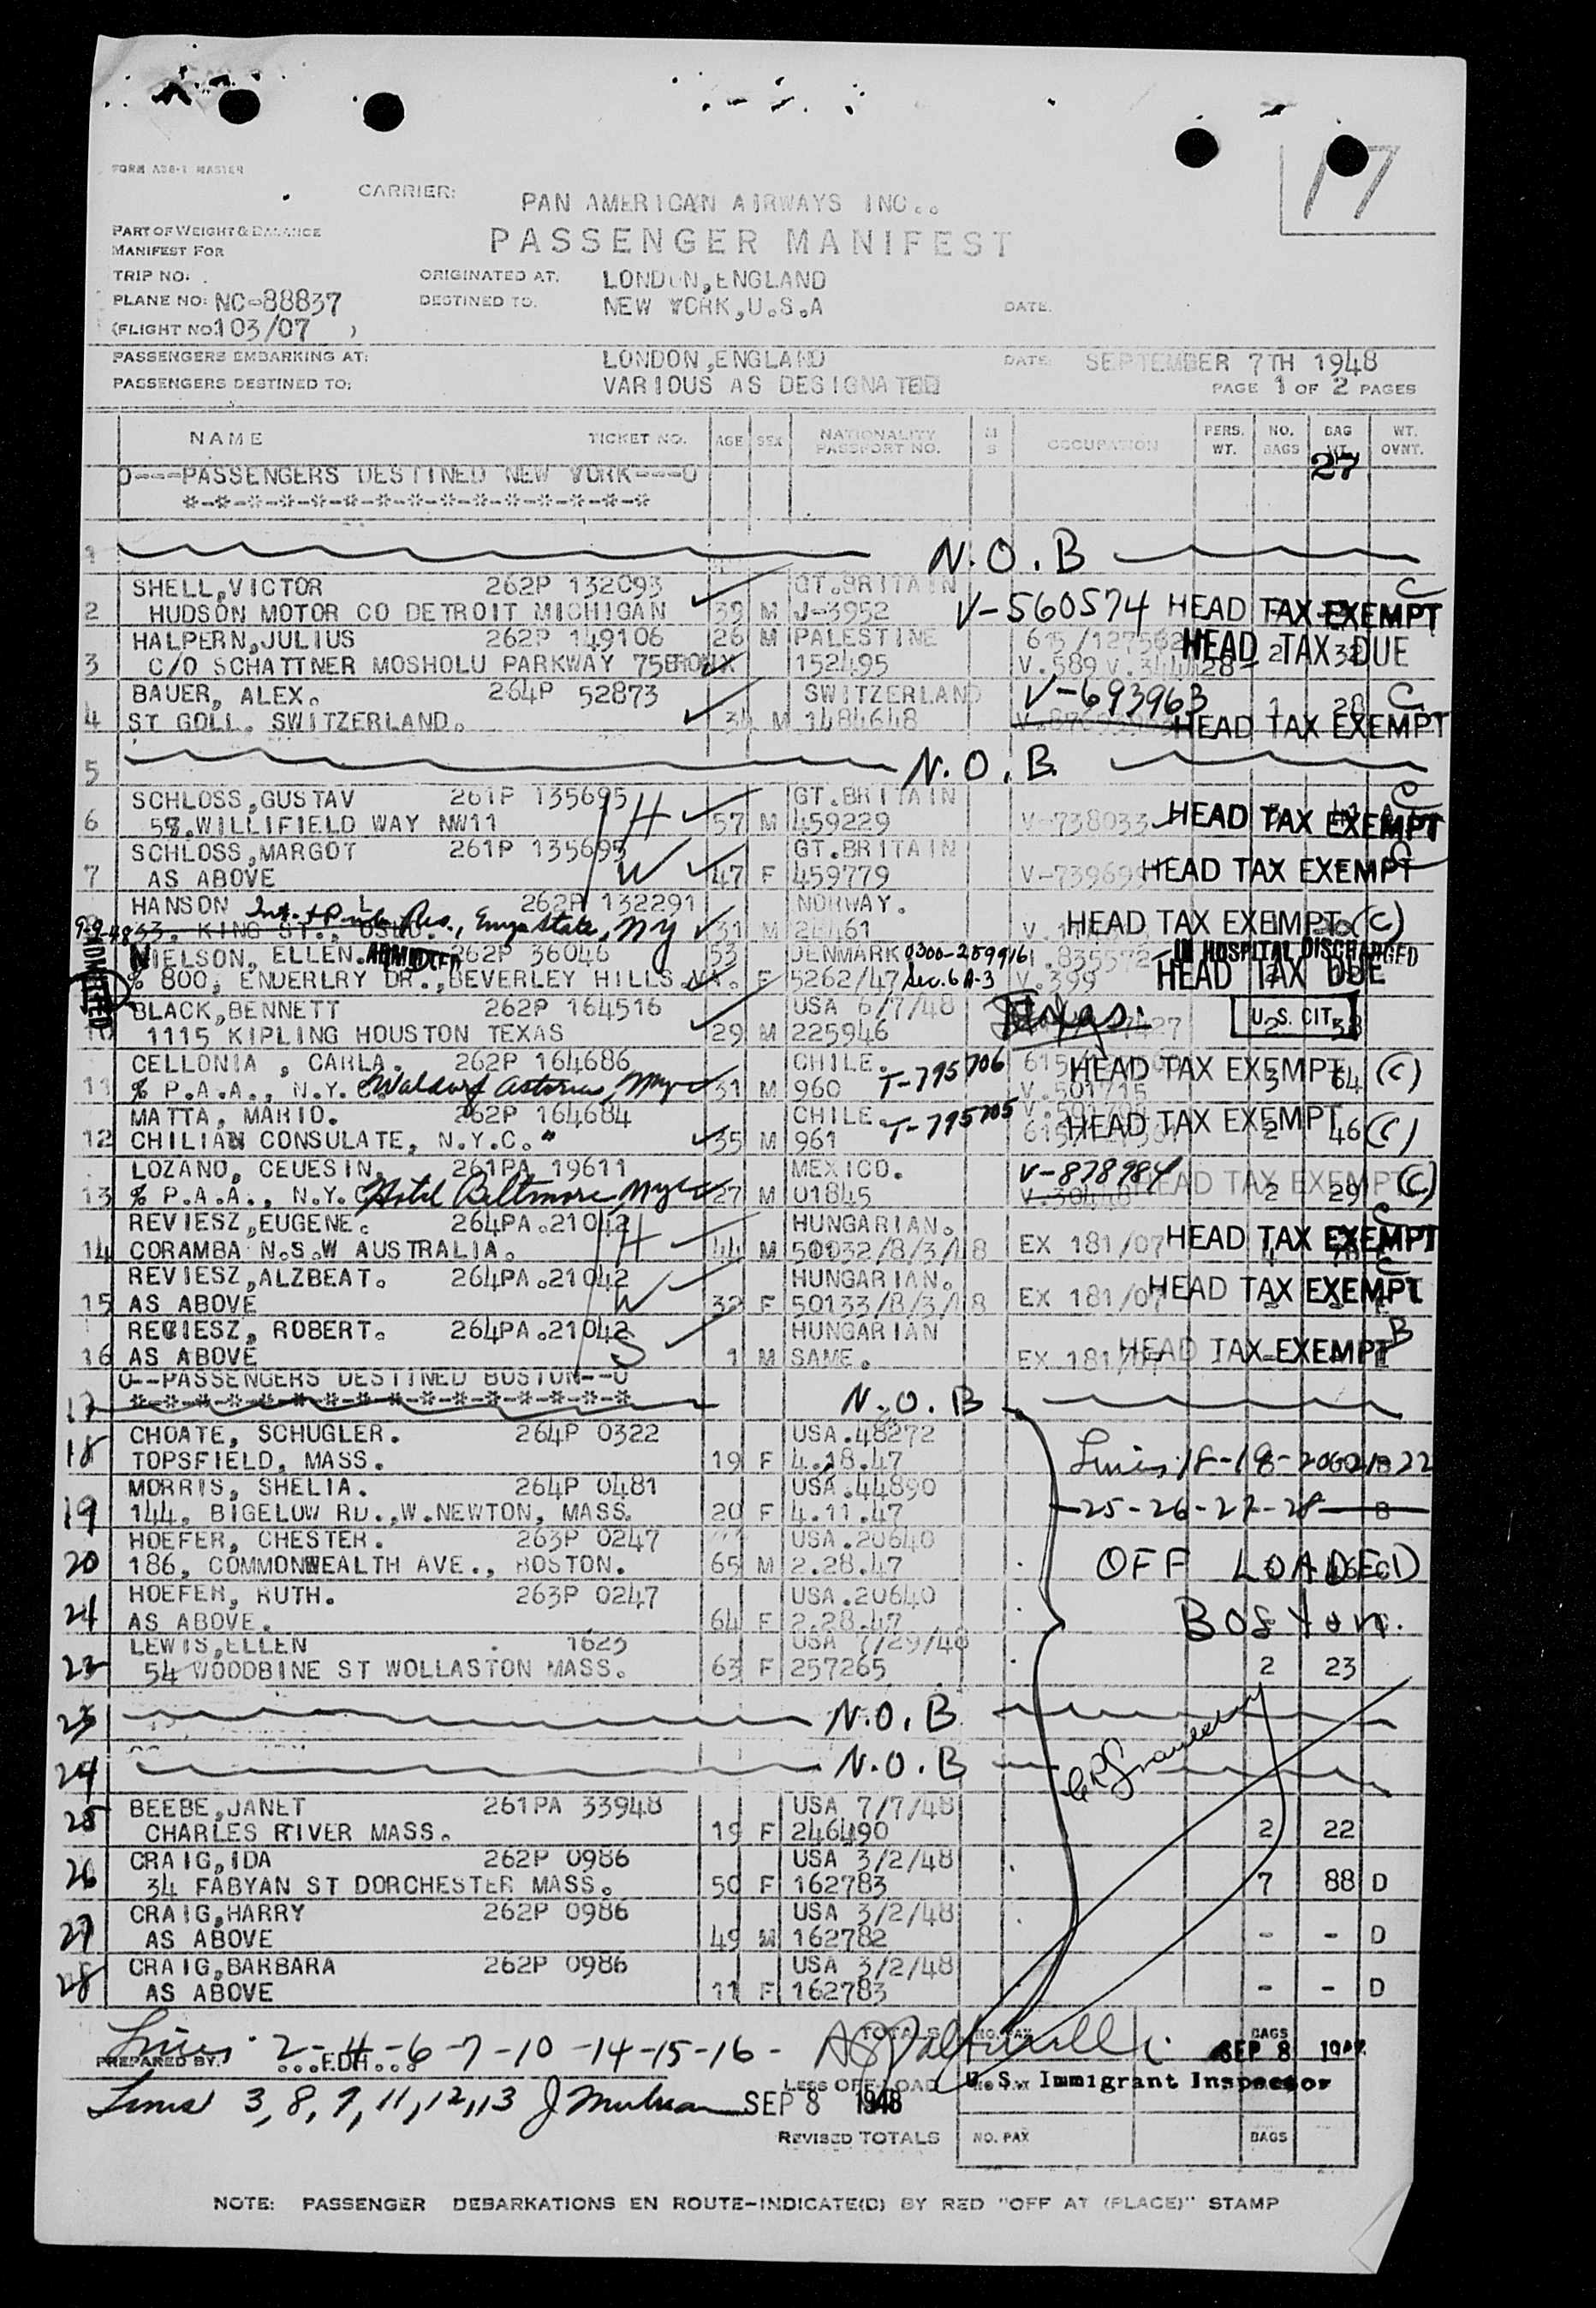 17
FORM ADB-1 MASTER
CARRIER: PAN AMERICAN AIRWAYS INC..
PART OF WEIGHT & BALANCE
MANIFEST FOR
PASSENGER MANIFEST
TRIP NO: ORIGINATED AT. LONDON,ENGLAND
PLANE NO: NC-88837 DESTINED TO. NEW YORK,U.S.A DATE.
(FLIGHT NO: 103/07 )
PASSENGERS EMBARKING AT: LONDON,ENGLAND DATE: SEPTEMBER 7TH 1948
PASSENGERS DESTINED TO: VARIOUS AS DESIGNATED PAGE 1 OF 2 PAGES
NAME TICKET NO. AGE SEX NATIONALITY PASSPORT NO. M S OCCUPATION PERS. WT. NO. BAGS BAG WT. WT. OVNT.
27
O---PASSENGERS DESTINED NEW YORK---O
*-*-*-*-*-*-*-*-*-*-*-*-*-*-*
1 N.O.B
SHELL,VICTOR 262P 132093 GT.BRITAIN C
2 HUDSON MOTOR CO DETROIT MICHIGAN 39 M J-3952 V-560574 HEAD TAX EXEMPT
HALPERN,JULIUS 262P 149106 26 M PALESTINE HEAD TAX DUE
3 C/O SCHATTNER MOSHOLU PARKWAY 75BRONX 152495
BAUER, ALEX. 264P 52873 SWITZERLAND V-693963 1 28 C
4 ST GOLL. SWITZERLAND. 34 M 1484648 HEAD TAX EXEMPT
5 N.O.B.
SCHLOSS,GUSTAV 261P 135695 H GT.BRITAIN C
6 58.WILLIFIELD WAY NW11 57 M 459229 V-738033 HEAD TAX EXEMPT
SCHLOSS,MARGOT 261P 135695 W GT.BRITAIN C
7 AS ABOVE 47 F 459779 HEAD TAX EXEMPT
HANSON L 262P 132291 NORWAY.
9-9-48 33. KING ST., OSLO. Empire State, NY 31 M HEAD TAX EXEMPT (C)
NIELSON, ELLEN. ADMITTED 262P 36046 53 DENMARK 0300-259916 IN HOSPITAL DISCHARGED
% 800, ENDERLRY DR.,BEVERLEY HILLS F 5262/47 Sec. 6 A-3 V.399 HEAD TAX DUE
ADMITTED
BLACK,BENNETT 262P 164516 USA 6/7/48 U.S. CIT.
10 1115 KIPLING HOUSTON TEXAS 29 M 225946
CELLONIA , CARLA. 262P 164686 CHILE. T-795706 HEAD TAX EXEMPT (C)
11 % P.A.A., N.Y.C. Waldorf Astoria, Nyc 31 M 960
MATTA, MARIO. 262P 164684 CHILE. T-795705 HEAD TAX EXEMPT
12 CHILIAN CONSULATE, N.Y.C. " 35 M 961 2 46 (C)
LOZANO, CEUESIN. 261PA 19611 MEXICO. V-878984 HEAD TAX EXEMPT (C)
13 % P.A.A., N.Y.C. Hotel Biltmore, Nyc 27 M 01845 2 29
REVIESZ,EUGENE. 264PA.21042 H HUNGARIAN. C
14 CORAMBA N.S.W AUSTRALIA. 44 M 50032/8/3/48 EX 181/07 HEAD TAX EXEMPT
REVIESZ,ALZBEAT. 264PA.21042 W HUNGARIAN. C
15 AS ABOVE 32 F 50133/8/3/48 EX 181/07 HEAD TAX EXEMPT
REVIESZ, ROBERT. 264PA.21042 S HUNGARIAN B
16 AS ABOVE 1 M SAME. EX 181/07 HEAD TAX EXEMPT
O--PASSENGERS DESTINED BOSTON--O
17 *-*-*-*-*-*-*-*-*-*-*-*-*-*-* N.O.B
CHOATE, SCHUGLER. 264P 0322 USA.48272
18 TOPSFIELD, MASS. 19 F 4.18.47 Lines 18-19-20-21-22
MORRIS, SHELIA. 264P 0481 USA.44890
19 144, BIGELOW RD.,W.NEWTON, MASS. 20 F 4.11.47 -25-26-27-28
HOEFER, CHESTER. 263P 0247 USA.20640
20 186, COMMONWEALTH AVE., BOSTON. 65 M 2.28.47 OFF LOADED
HOEFER, RUTH. 263P 0247 USA.20640
21 AS ABOVE. 64 F 2.28.47 Boston.
LEWIS,ELLEN 1623 USA 7/29/48
22 54 WOODBINE ST WOLLASTON MASS. 63 F 257265 2 23
23 N.O.B
24 N.O.B
BEEBE,JANET 261PA 33948 USA 7/7/48
25 CHARLES RIVER MASS. 19 F 246490 2 22
CRAIG,IDA 262P 0986 USA 3/2/48
26 34 FABYAN ST DORCHESTER MASS. 50 F 162783 7 88 D
CRAIG,HARRY 262P 0986 USA 3/2/48
27 AS ABOVE 49 M 162782 - - D
CRAIG,BARBARA 262P 0986 USA 3/2/48
28 AS ABOVE 11 F 162783 - - D
Lines 2-4-6-7-10-14-15-16- TOTALS NO. PAX BAGS SEP 8 1948
PREPARED BY. ...FDH...
LESS OFF-LOAD U.S. Immigrant Inspector
Lines 3,8,9,11,12,13 SEP 8 1948
REVISED TOTALS NO. PAX BAGS
NOTE: PASSENGER DEBARKATIONS EN ROUTE-INDICATE(D) BY RED "OFF AT (PLACE)" STAMP